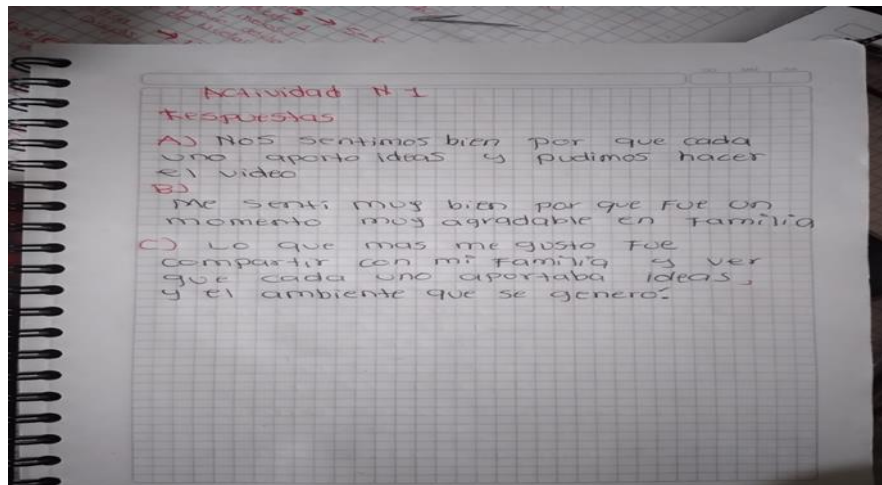 Actividad N 1
Respuestas
A) Nos sentimos bien por que cada
uno aporto ideas y pudimos hacer
el video
B)
Me senti muy bien por que Fue un
momento muy agradable en Familia
C) Lo que mas me gusto Fue
compartir con mi Familia y ver
que cada uno aportaba ideas,
y el ambiente que se genero.